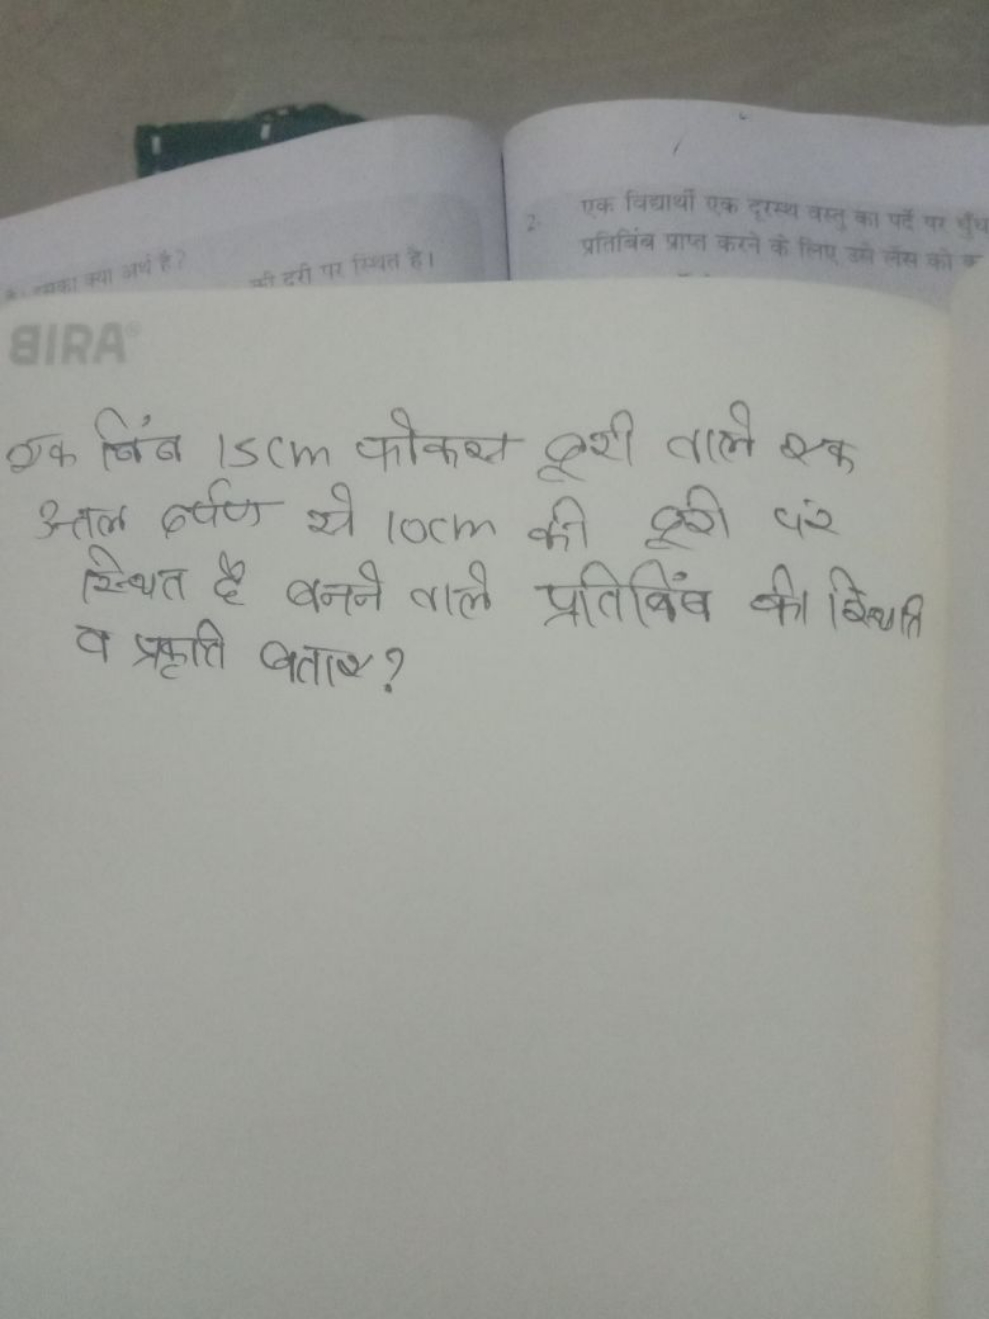 क्या अर्थ है?
की दूरी पर स्थित है।
2. एक विद्यार्थी एक दूरस्थ वस्तु का पर्दे पर
प्रतिबिंब प्राप्त करने के लिए उसे लेंस को
BIRA
एक बिंब 15cm फोकस दूरी वाले एक
दर्पण से 10cm की दूरी पर
स्थित है बनने वाले प्रतिबिंब की स्थिति
व प्रकृति बताए?